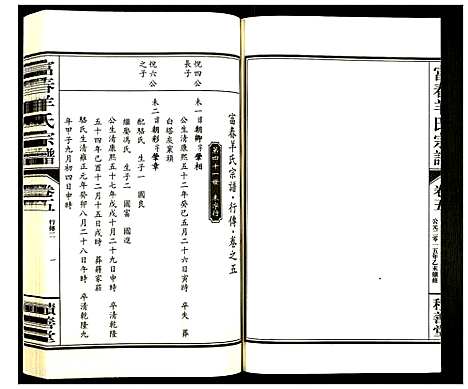 富春羊氏宗譜
卷五
公元二零一五年乙未續修
積善堂
富春羊氏宗譜·行傳·卷之五
第四十一世 未字行
悅四公長子
未一日朝卿字榮相
公生清康熙五十二年癸巳五月二十六日寅時 卒失 葬白塔炭窯
悅六公之子
未二日朝彩字榮章
公生清康熙五十七年戊戌十月二十九日申時 卒清乾隆五十四年己酉十二月十五日戌時 葬蔣家莊
繼娶馮氏 生子二 國富
配駱氏 生子一 國良
駱氏生清雍正元年癸卯八月二十八日午時 卒清乾隆九年甲子九月初四日申時
富春羊氏宗譜
卷五
行傳二
一
積善堂